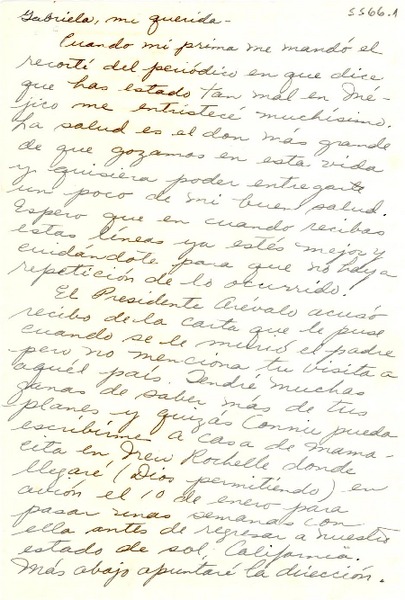 SS66.1
Gabriela, mi querida-
Cuando mi prima me mandó el
recorté del periódico en que dice
que has estado tan mal en Mé-
jico me entristecé muchísimo.
La salud es el don más grande
de que gozamos en esta vida
y quisiera poder entregarte
un poco de mi buen salud.
Espero que en cuando recibas
estas líneas ya estés mejor y
cuidándote para que no haya
repetición de lo ocurrido.
El Presidente Arévalo acusó
recibo de la carta que le puse
cuando se le murió el padre
pero no menciona tu visita a
aquél país. Tendré muchas
ganas de saber más de tus
planes y quizás Connie pueda
escribirme a casa de Mama-
cita en New Rochelle donde
llegaré (Dios permitiendo) en
avión el 10 de enero para
pasar unas semanas con
ella antes de regresar a nuestro
estado de sol, California.
Más abajo apuntaré la dirección.